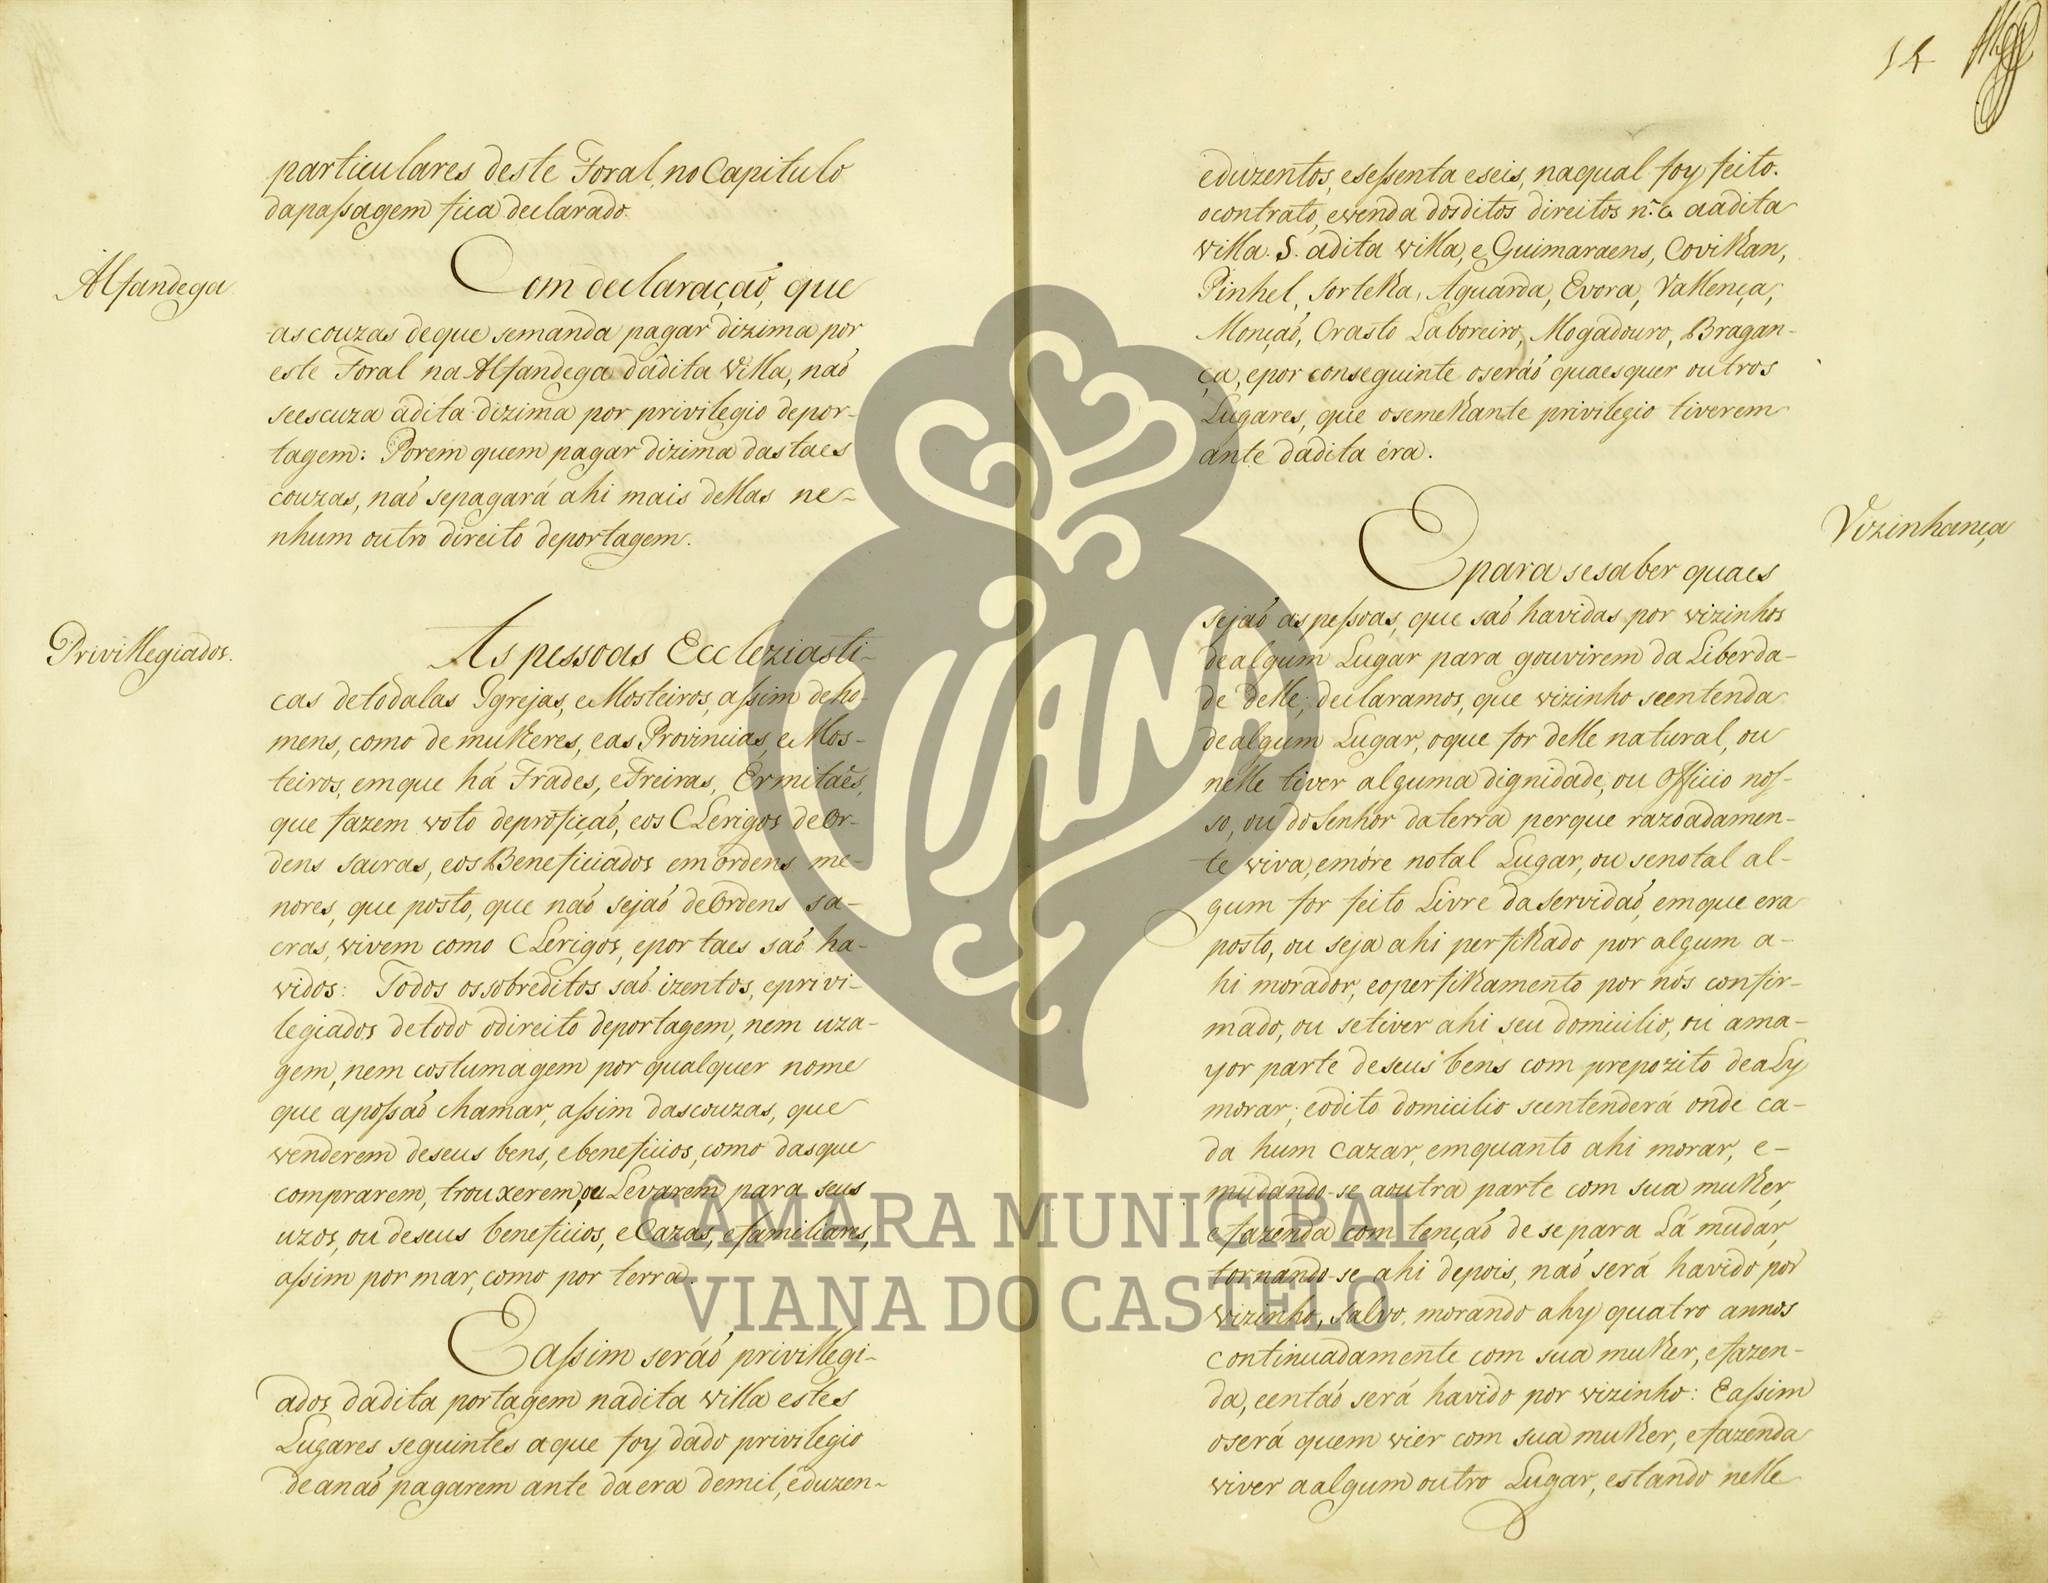 particulares deste Foral, no Capitulo
dapassagem fica declarado.
Alfandega
Com declaraçaõ, que
as couzas deque semanda pagar dizima por
este Foral na Alfandega dadita Villa, naõ
seescuza adita dizima por privilegio depor-
tagem: Porem quem pagar dizima das taes
couzas, naõ sepagará ahi mais dellas ne-
nhum outro direito deportagem.
Privillegiados.
As pessoas Eccleziasti-
cas detodalas Igrejas, e Mosteiros, assim deho-
mens, como de mulheres, e as Provincias, e Mos-
teiros, emque há Frades, e Freiras, Ermitaẽs,
que fazem voto deprofiçaõ, eos Clerigos de Or-
dens sacras, eos Beneficiados em ordens me-
nores, que posto, que naõ sejaõ de Ordens sa-
cras, vivem como Clerigos, epor taes saõ ha-
vidos: Todos ossobreditos saõ izentos, eprivi-
legiados detodo odireito deportagem, nem uza-
gem, nem costumagem por qualquer nome
que apossaõ chamar, assim dascouzas, que
venderem deseus bens, ebeneficios, como dasque
comprarem, trouxerem, ou Levarem para seus
uzos, ou deseus beneficios, e Cazas, efamiliares,
assim por mar, como por terra.
E assim seráõ privillegi-
ados dadita portagem nadita villa estes
Lugares seguintes aque foy dado privilegio
deanaõ pagarem ante da era demil, eduzen-
14
eduzentos, esessenta eseis, naqual foy feito.
ocontrato, evenda dosditos direitos aadita
villa. S. adita villa, e Guimaraens, Covilhan,
Pinhel, Sortelha, Aguarda, Evora, Vallença,
Monçaõ, Crasto Laboreiro, Mogadouro, Bragan-
ça, epor conseguinte oseráõ quaesquer outros
Lugares, que osemelhante privilegio tiverem
ante dadita éra.
Vizinhança
E para sesaber quaes
sejaõ as pessoas, que saõ havidas por vizinhos
dealgum Lugar para gouvirem da Liberda-
de delle; declaramos, que vizinho seentenda
dealgum Lugar, oque for delle natural, ou
nelle tiver alguma dignidade, ou Officio nos-
so, ou do Senhor daterra perque razoadamen-
te viva, emóre notal Lugar, ou senotal al-
gum for feito Livre daservidaõ, emque era
posto, ou seja ahi perfilhado por algum a-
hi morador, eoperfilhamento por nós confir-
mado, ou setiver ahi seu domicilio, ou ama-
yor parte deseus bens com prepozito dealy
morar; eodito domicilio seentenderá onde ca-
da hum cazar, emquanto ahi morar, e-
mudando-se aoutra parte com sua mulher,
efazenda com tençaõ de se para Lá mudar,
tornando-se ahi depois, naõ será havido por
vizinho, salvo, morando ahy quatro annos
continuadamente com sua mulher, efazen-
da, eentaõ será havido por vizinho: Eassim
oserá quem viér com sua mulher, efazenda
viver aalgum outro Lugar, estando nelle
CÂMARA MUNICIPAL
VIANA DO CASTELO